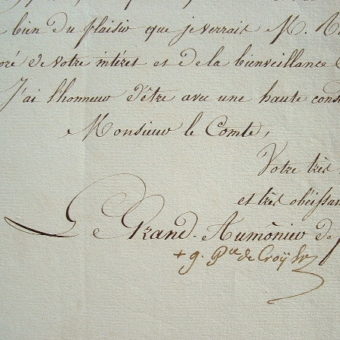 bien du plaisir que je verrais M.
oré de votre intérêt et de la bienveillance
J'ai l'honneur d'être avec une haute cons
Monsieur le Comte,
Votre très
et très obéissan
Le Grand-Aumônier de
+ g. Pce de Croÿ